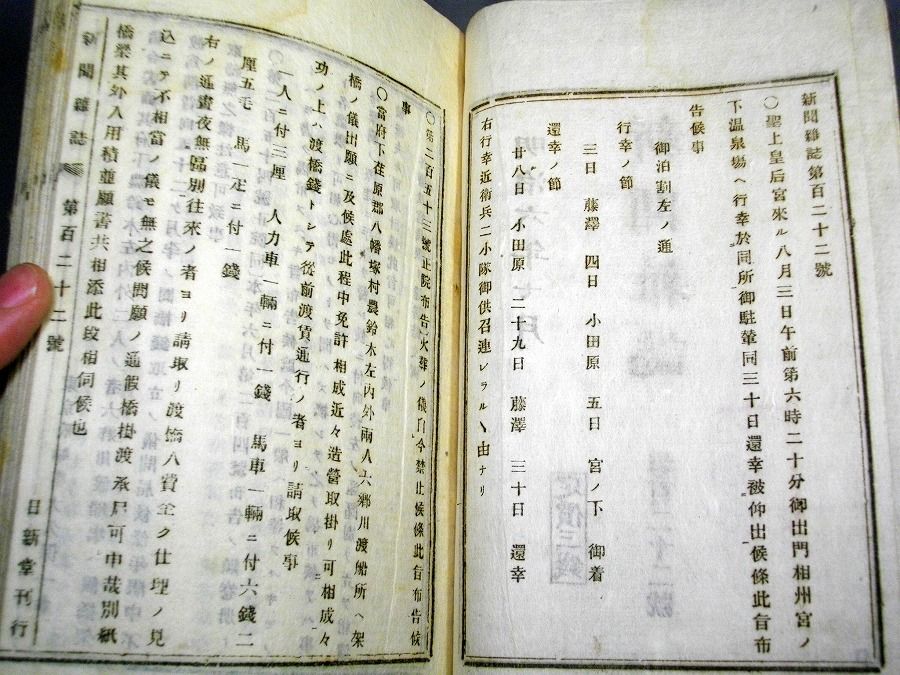 新聞雜誌第百二十二號
〇聖上皇后宮來ル八月三日午前第六時二十分御出門相州宮ノ
下温泉場ヘ行幸於同所御駐輦同三十日還幸被仰出候條此旨布
告候事
御泊割左ノ通
行幸ノ節
三日 藤澤 四日 小田原 五日 宮ノ下 御着
還幸ノ節
廿八日 小田原 二十九日 藤澤 三十日 還幸
右行幸近衛兵二小隊御供召連レラルヽ由ナリ
〇第二百五十三號正院布告火葬ノ儀自今禁止候條此旨布告候
事
〇當府下荏原郡八幡塚村農鈴木左内外兩人六郷川渡船所ヘ架
橋ノ儀出願ニ及候處此程中免許相成近々造營取掛リ可相成々
功ノ上ハ渡橋錢トシテ從前渡賃通行ノ者ヨリ請取候事
〇一人ニ付三厘 人力車一輛ニ付一錢 馬車一輛ニ付六錢二
厘五毛 馬一疋ニ付一錢
右ノ通晝夜無區別往來ノ者ヨリ請取リ渡橋入費全ク仕理ノ見
込ニテ不相當ノ儀モ無之候間願ノ通假橋掛渡承屆可申哉別紙
橋梁其外入用積並願書共相添此段相伺候也
新聞雜誌 第百二十二號 日新堂刊行